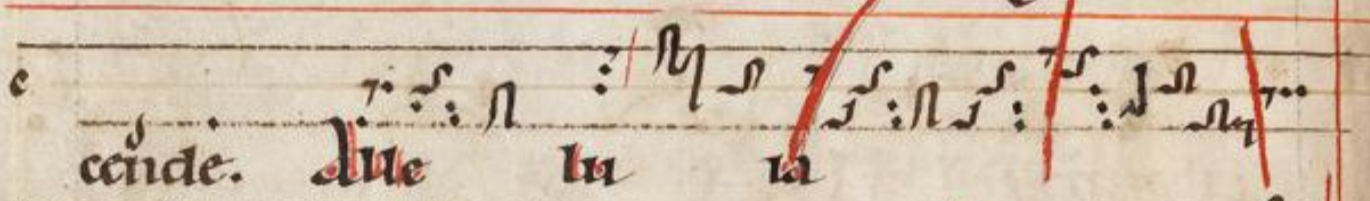 c
cende. Alle lu ia